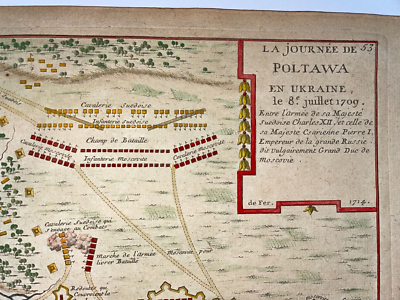 53
LA JOURNÉE DE
POLTAWA
EN UKRAINE,
le 8.e juillet 1709.
Entre l'Armée de sa Majesté
Suedoise Charles XII, et celle de
sa Majesté Czarienne Pierre I.
Empereur de la grande Russie
Grand Duc de
Moscovie
de Fer.
1714.
Cavalerie Suedoise
Infanterie Suedoise
Champ de Bataille
Infanterie Moscovite
Cavalerie Suedoise qui
s'engage au Combat
Marche de l'armée
Moscovite pour
livrer Bataille
Redoutes qui
Couvroient le